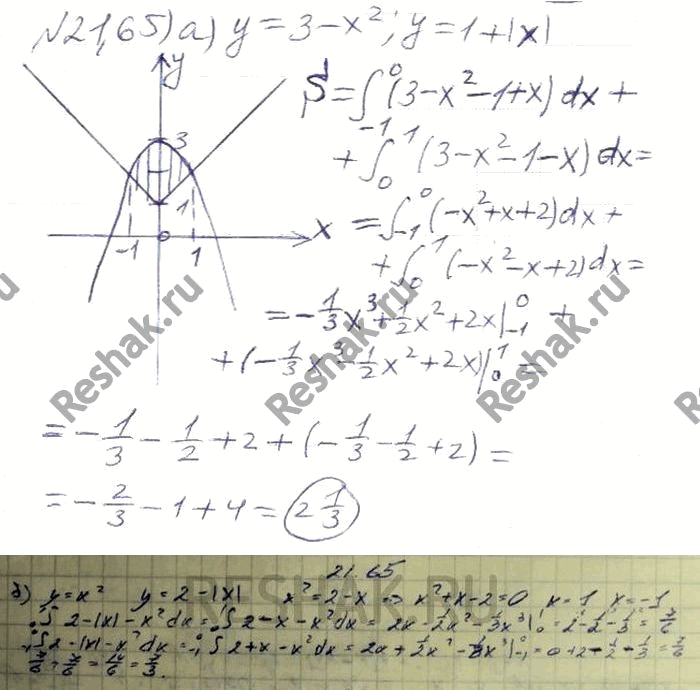 №21,65) а) y = 3 - x²; y = 1 + |x|
S = ∫₋₁⁰ (3 - x² - 1 + x) dx +
+ ∫₀¹ (3 - x² - 1 - x) dx =
= ∫₋₁⁰ (-x² + x + 2) dx +
+ ∫₀¹ (-x² - x + 2) dx =
= -1/3 x³ + 1/2 x² + 2x |₋₁⁰ +
+ (-1/3 x³ - 1/2 x² + 2x) |₀¹ =
= -1/3 - 1/2 + 2 + (-1/3 - 1/2 + 2) =
= -2/3 - 1 + 4 = 2 1/3
y
3
1
x
-1 0 1
Reshak.ru
Reshak.ru
Reshak.ru
21.65
RESHAK.RU
б) y = x² y = 2 - |x| x² = 2 - x => x² + x - 2 = 0 x = 1 x = -1
₀¹∫ 2 - |x| - x² dx = ₀¹∫ 2 - x - x² dx = 2x - 1/2 x² - 1/3 x³ |₀¹ = 2 - 1/2 - 1/3 = 7/6
₋₁⁰∫ 2 - |x| - x² dx = ₋₁⁰∫ 2 + x - x² dx = 2x + 1/2 x² - 1/3 x³ |₋₁⁰ = 0 + 2 - 1/2 - 1/3 = 7/6
7/6 + 7/6 = 14/6 = 7/3.